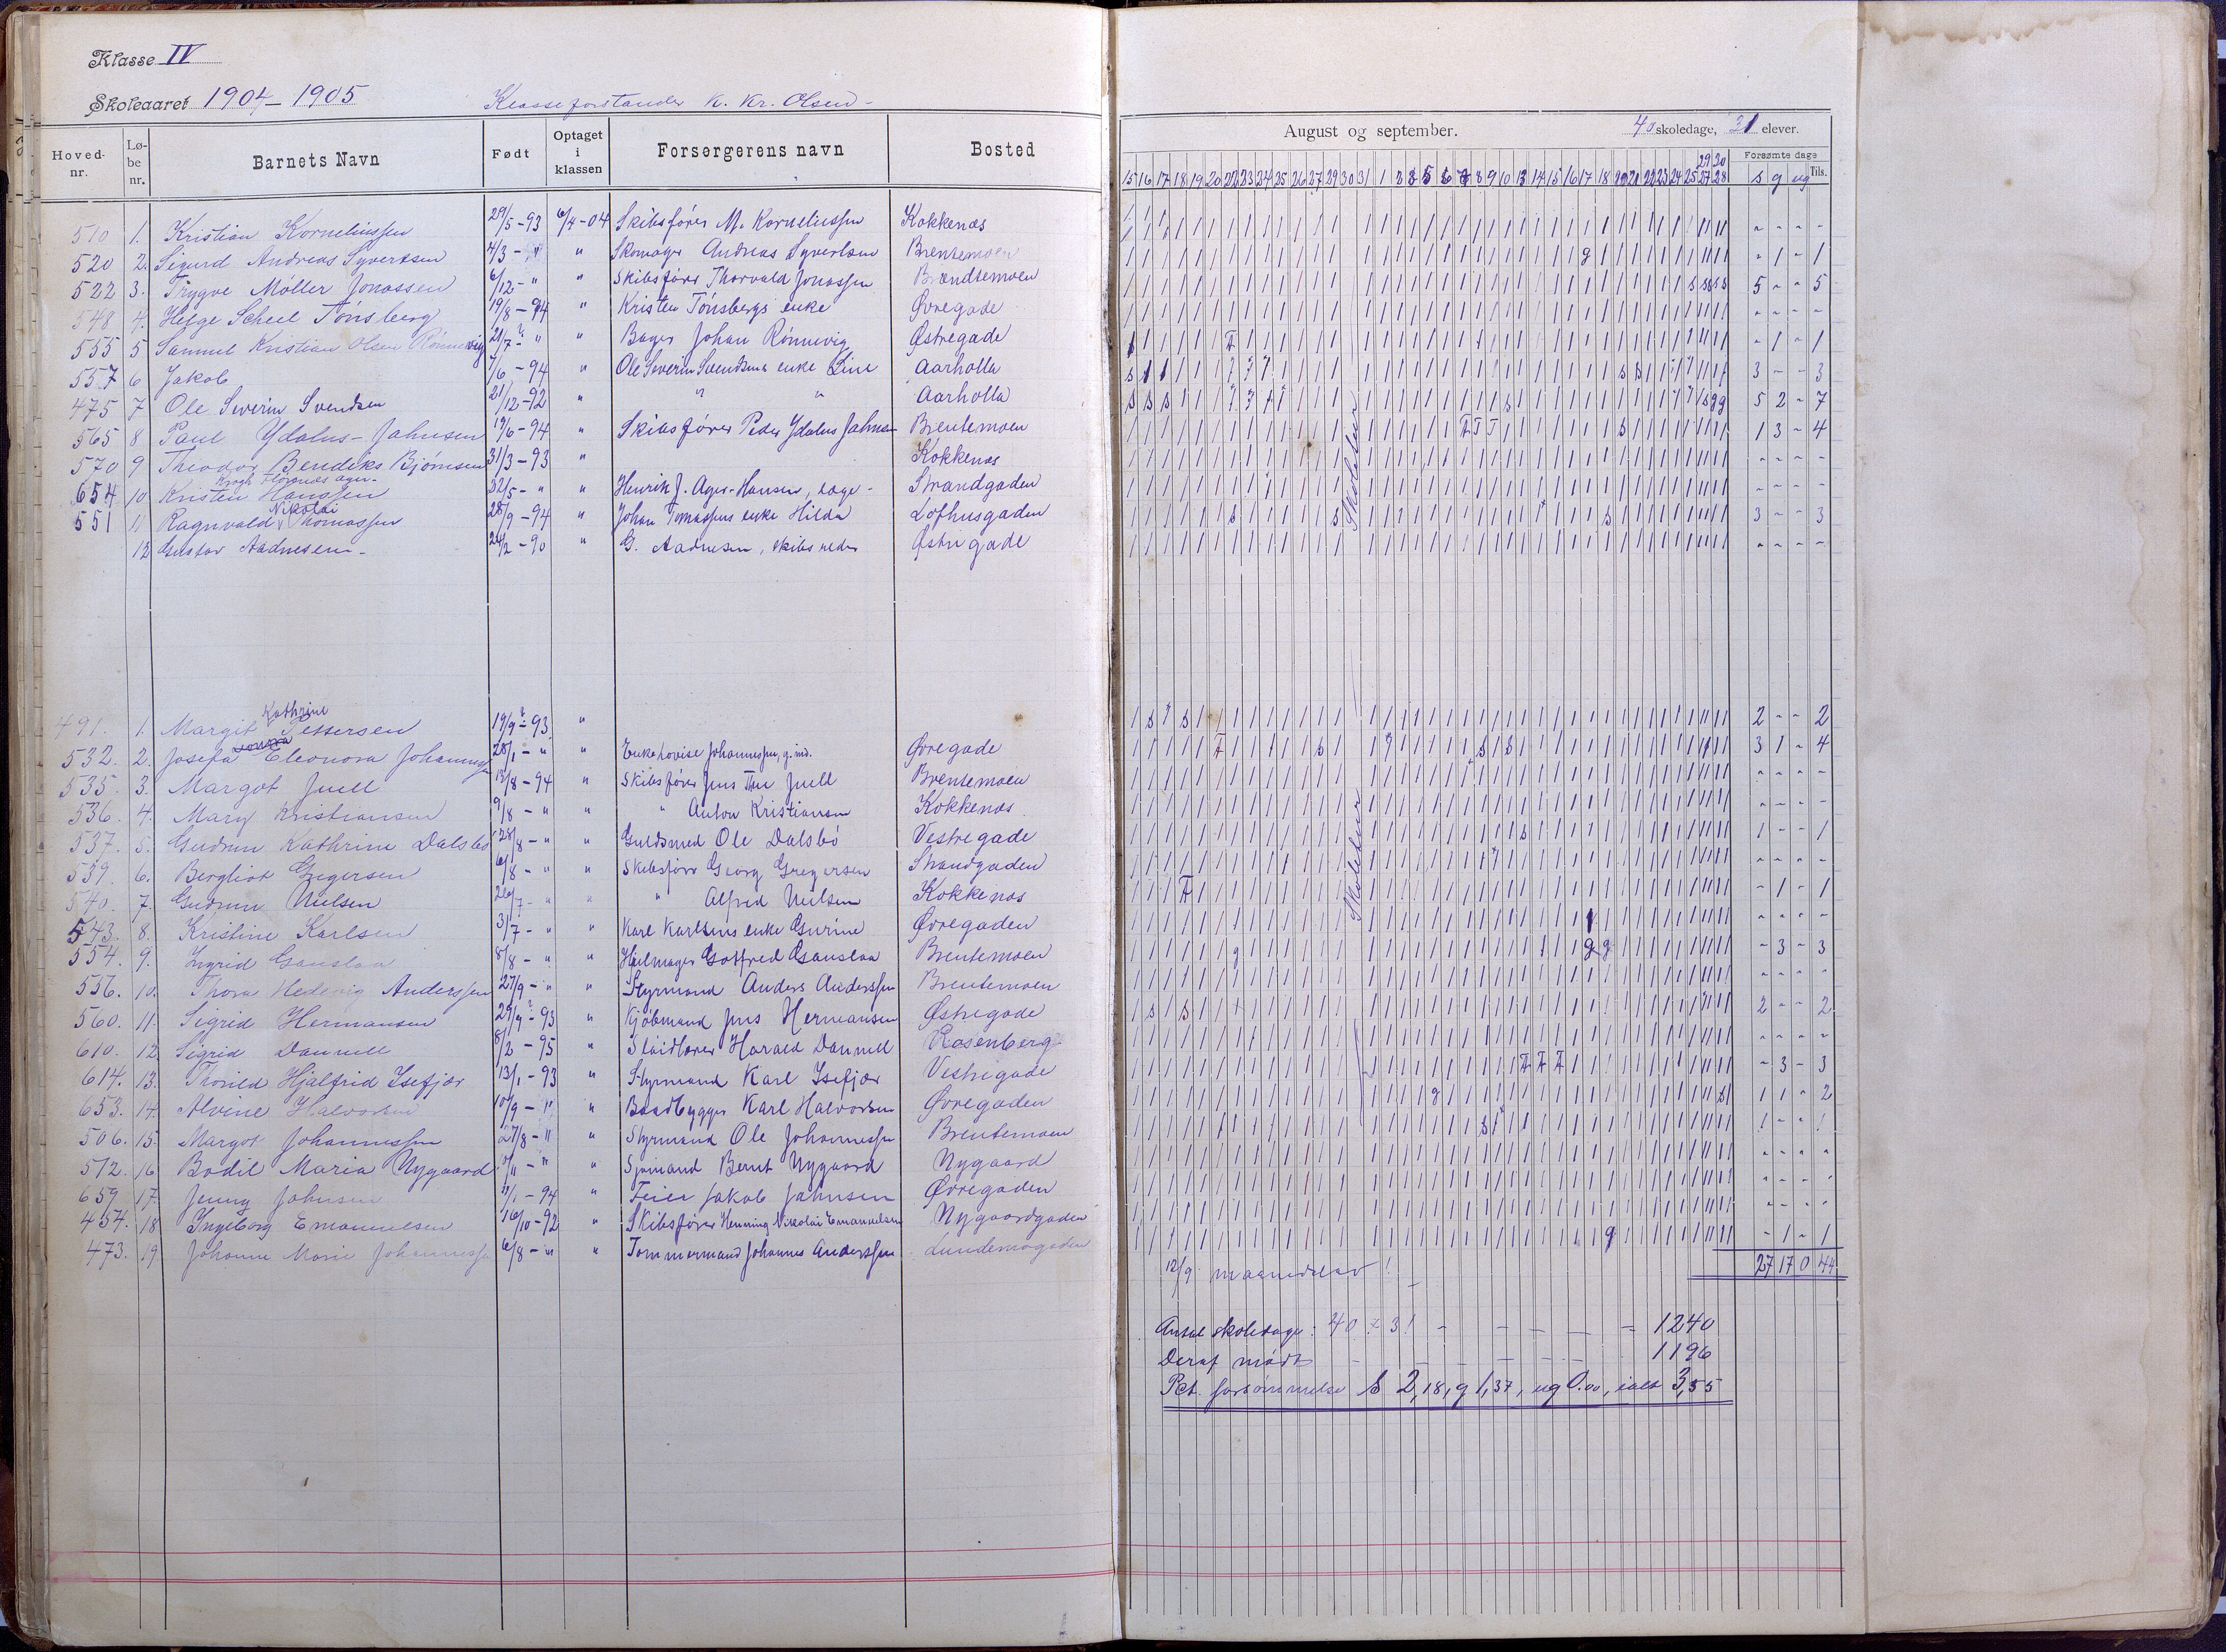 Klasse IV
Skoleaaret 1904 - 1905 Klasseforstander K. Kr. Olsen -
Hoved-nr. Lø-be nr. Barnets Navn Født Optaget i klassen Forsørgerens navn Bosted
510 1. Kristian Korneliussen 29/5-93 6/4-04 Skibsfører M. Korneliussen Kokkenæs
520 2. Sigurd Andreas Syvertsen 4/3 - " " Skomager Andreas Syvertsen Brentemoen
522 3. Trygve Møller Jonassen 6/12 - " " Skibsfører Thorvald Jonassen Brændtemoen
548 4. Helge Scheel Tønsberg 19/8 - 94 " Kristen Tønsbergs enke Øvregade
555 5 Samuel Kristian Olsen Rønnevig 21/7 - " " Bager Johan Rønnevig Østregade
557 6 Jakob 7/6 - 94 " Ole Severin Svendsens enke Line Aarholta
475 7 Ole Severin Svendsen 21/12-92 " " " Aarholta
565 8 Paul Ydalus-Jahnsen 19/6-94 " Skibsfører Peder Ydalus Jahnsen Brentemoen
570 9 Theodor Bendiks Bjørnsen 31/3-93 " Kokkenæs
654 10 Kristen Hanssen 22/5 - " " Henrik J. Ager-Hansen, læge - Strandgaden
551 11 Ragnvald Nikolai Thomassen 28/9 - 94 " Johan Tomassens enke Hilda Lofthusgaden
12 Gustav Aadnesen - 24/2 - 90 " G. Aadnesen, skibsreder Østregade
491. 1. Margit Kathrine Pettersen 19/9 - 93 "
532. 2. Josefa Eleonora Johannessen 28/1 - " " Enke Lovise Johannessen, Øvregade
535. 3. Margot Juell 13/8 - 94 " Skibsfører Jens Juell Brentemoen
536. 4. Mary Kristiansen 9/8 - " " " Anton Kristiansen Kokkenæs
537. 5. Gudrun Kathrine Dalsbø 28/8 - " " Guldsmed Ole Dalsbø Vestregade
539. 6. Bergliot Gregersen 6/8 - " " Skibsfører Georg Gregersen Strandgaden
540. 7. Gudrun Nielsen 26/7 - " " " Alfred Nielsen Kokkenæs
543. 8. Kristine Karlsen 3/7 - " " Karl Karlsens enke Gurine Øvregaden
554. 9. Ingrid Gauslaa 8/8 - " " Hjulmager Gotfred Gauslaa Brentemoen
556. 10. Thora Hedevig Anderssen 27/9 - " " Styrmand Anders Anderssen Brentemoen
560. 11. Sigrid Hermansen 29/9 - 93 " Kjøbmand Jens Hermansen Østregade
610. 12. Sigrid Dannell 8/2 - 95 " Sløidlærer Harald Dannell Rosenberg
614. 13. Thorild Hjalfrid Isefjær 13/1 - 93 " Styrmand Karl Isefjær Vestregade
653. 14. Alvine Halvorsen 10/9 - " " Baadbygger Karl Halvorsen Øvregaden
506. 15. Margot Johannessen 27/8 - " " Styrmand Ole Johannessen Brentemoen
572. 16 Bodil Maria Nygaard /11 - " " Sjømand Bernt Nygaard Nygaard
659 17. Jenny Johnsen 11/1 - 94 " Feier Jakob Johnsen Øvregaden
454. 18 Ingeborg Emanuelsen 16/10-92 " Skibsfører Henning Nikolai Emanuelsen Nygaardgaden
473. 19 Johanne Marie Johannessen 6/8 - " " Tømmermand Johannes Anderssen Lundemogaden
August og september. 40 skoledage, 31 elever.
29 30
15 16 17 18 19 20 22 23 24 25 26 27 29 30 31 1 2 3 5 6 7 8 9 10 13 14 15 16 17 18 20 21 22 23 24 25 27 28
Forsømte dage
s g ug Tils.
- - - -
- 1 - 1
5 - - 5
- - - -
- 1 - 1
3 - - 3
5 2 - 7
1 3 - 4
- - - -
- - - -
3 - - 3
- - - -
Skoletur
2 - - 2
3 1 - 4
- - - -
- - - -
1 - - 1
- - - -
- 1 - 1
- - - -
- 3 - 3
- - - -
2 - - 2
- - - -
- 3 - 3
1 1 - 2
1 - - 1
- - - -
- - - -
- - - -
- 1 - 1
Skoletur
27 17 0 44
12/9 maanedslov!
Antal skoledage: 40 x 31 - - - - 1240
Deraf mødt - - - - 1196
Pct. forsømmelse s 2,18, g 1,37, ug 0.00, ialt 3,55